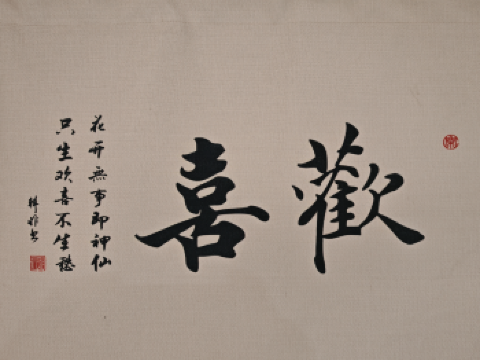 歡喜
花开無事即神仙
只生欢喜不生愁